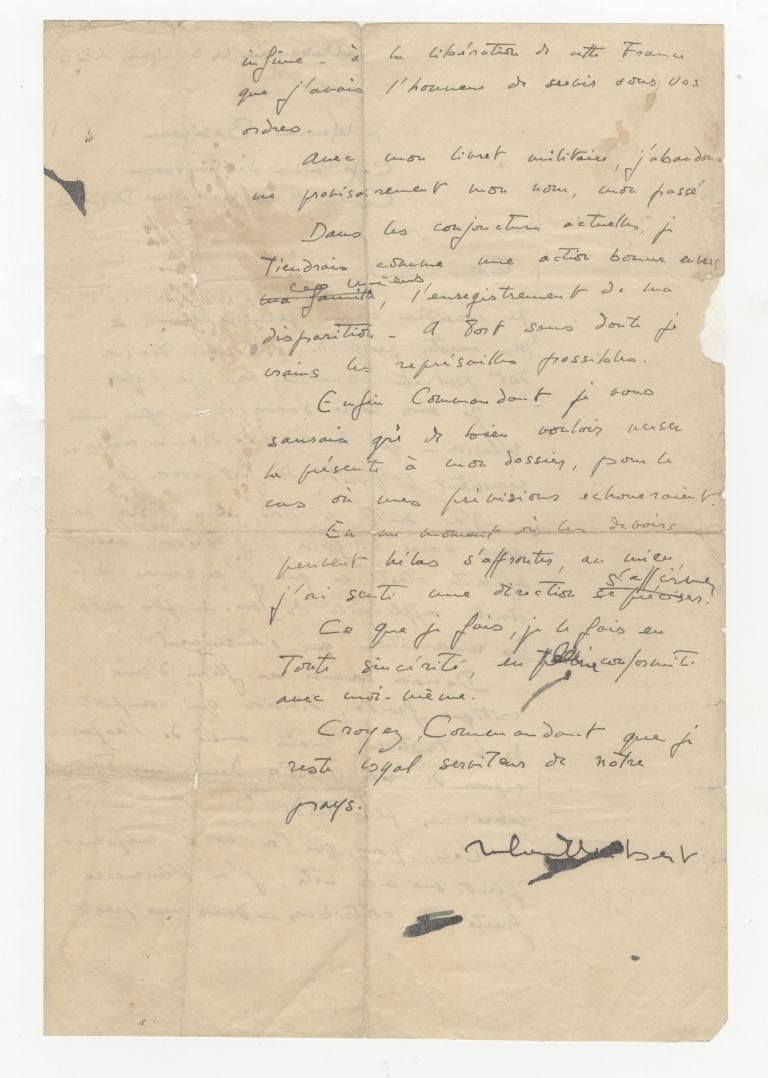 infime - à la libération de cette France
que j'avais l'honneur de servir sous vos
ordres.
Avec mon livret militaire, j'abandon
ne provisoirement mon nom, mon passé.
Dans les conjonctures actuelles, je
tiendrais comme une action bonne envers
ma famille, ces miens l'enregistrement de ma
disparition - A tort sans doute je
crains les représailles possibles.
Enfin Commandant je vous
saurais gré de bien vouloir verser
la présente à mon dossier, pour le
cas où mes prévisions échoueraient.
En un moment où les devoirs
peuvent hélas s'affronter, au mien
j'ai senti une direction se préciser. s'affirmer
Ce que je fais, je le fais en
toute sincérité, en pleine conformité
avec moi-même.
Croyez, Commandant que je
reste loyal serviteur de notre
pays.